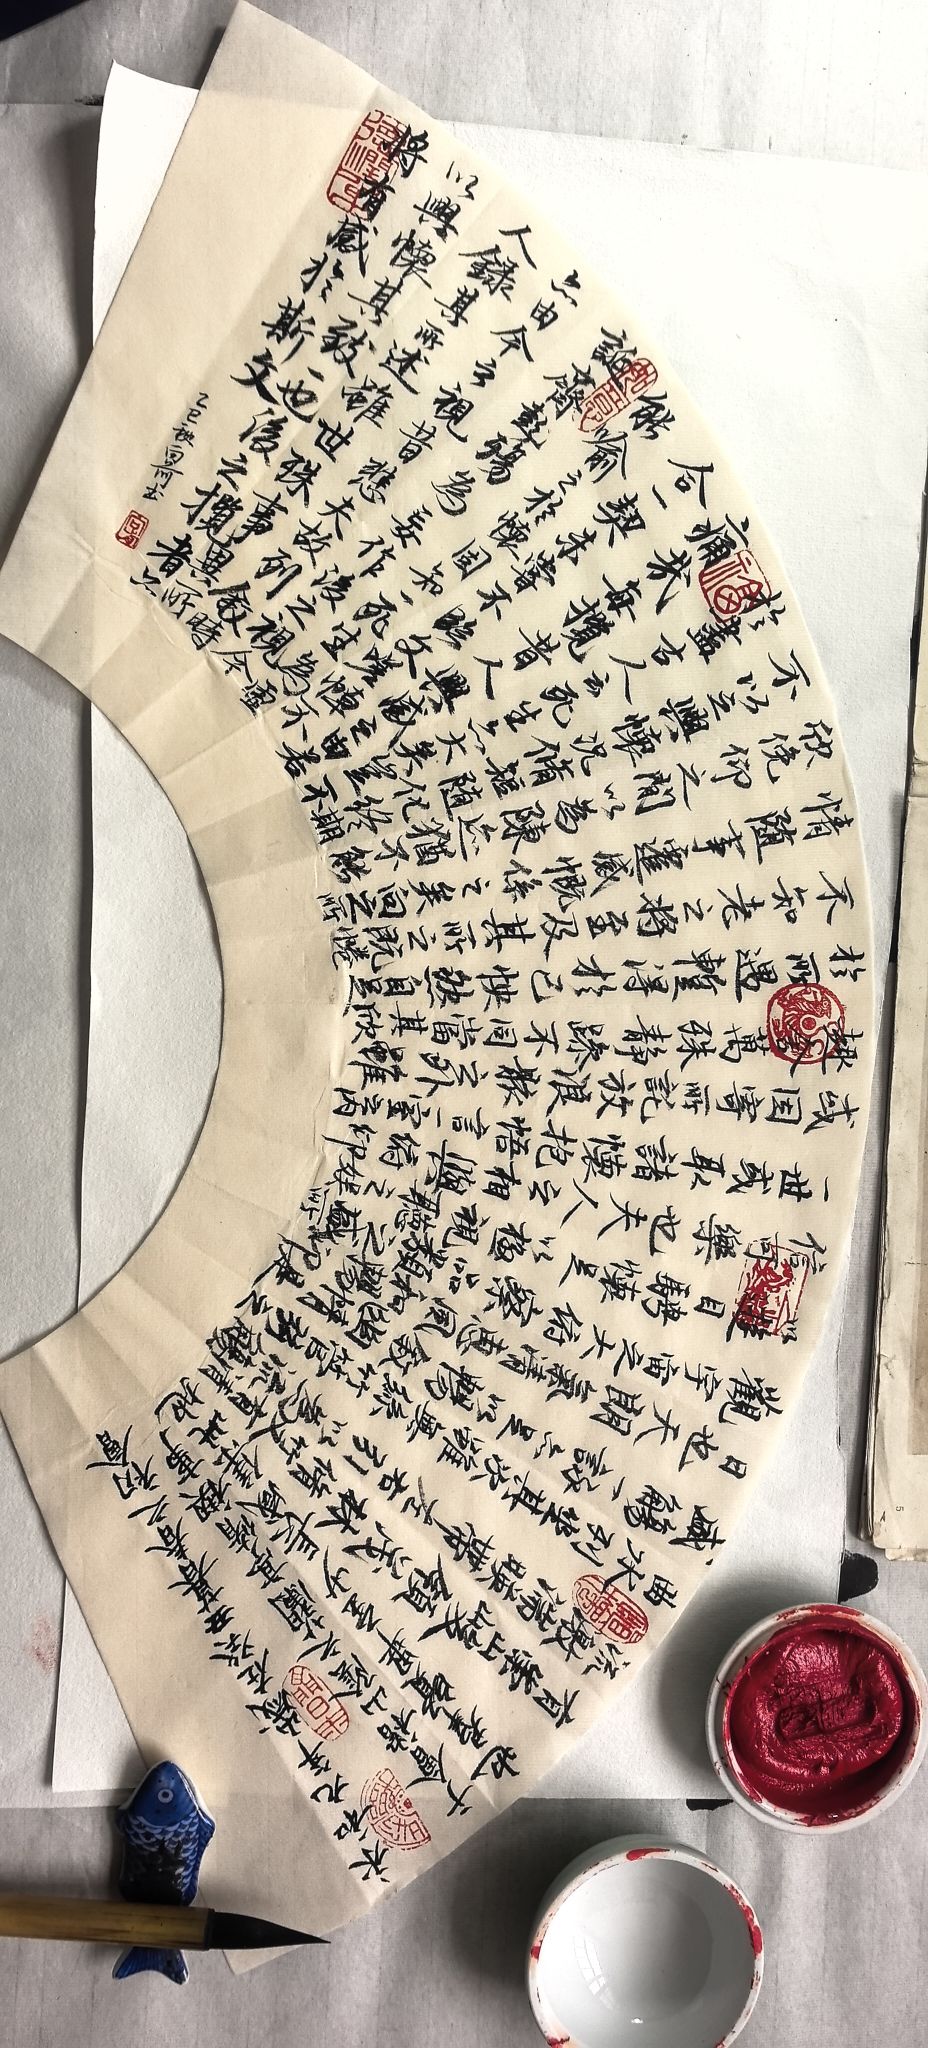 永和九年歲在癸丑暮春之初會
于會稽山陰之蘭亭脩禊事
也羣賢畢至少長咸集此地
有崇山峻領茂林脩竹又有清
流激湍映帶左右引以為流觴
曲水列坐其次雖無絲竹管弦之
盛一觴一詠亦足以暢敘幽情
是日也天朗氣清惠風和暢仰
觀宇宙之大俯察品類之盛所
以遊目騁懷足以極視聽之娛
信可樂也夫人之相與俯仰
一世或取諸懷抱悟言一室之內
或因寄所託放浪形骸之外雖
趣舍萬殊靜躁不同當其欣
於所遇暫得於己快然自足
不知老之將至及其所之既惓
情隨事遷感慨係之矣向之所
欣俛仰之間以為陳迹猶不能
不以之興懷況脩短隨化終期
於盡古人云死生亦大矣豈不
痛哉每攬昔人興感之由若
合一契未嘗臨文嗟悼不
能喻之於懷固知一死生為虛
誕齊彭殤為妄作後之視今
亦由今之視昔悲夫故列敘時
人錄其所述雖世殊事異所
以興懷其致一也後之攬者亦
將有感於斯文
乙巳秋
福